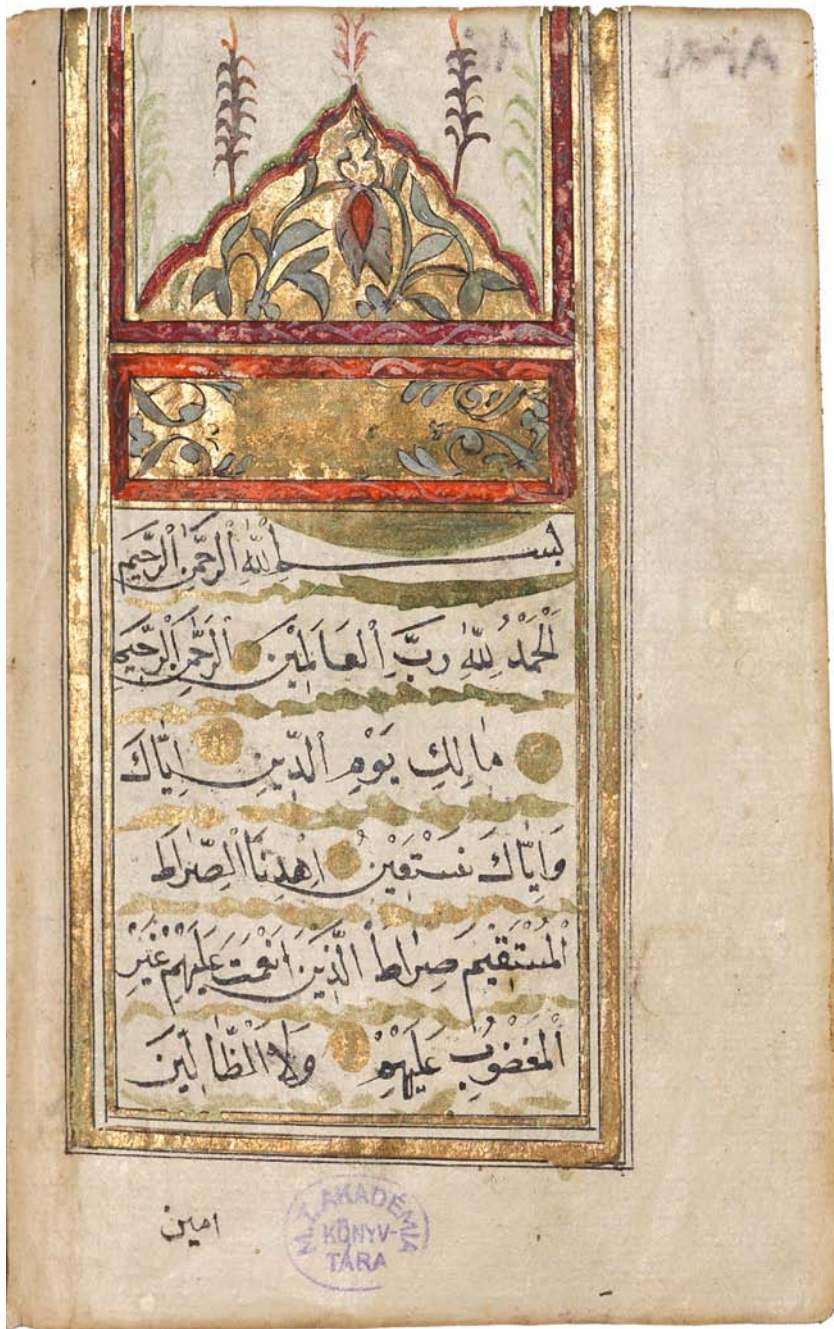 بِسْمِ اللّٰهِ الرَّحْمٰنِ الرَّحِيمِ
اَلْحَمْدُ لِلّٰهِ رَبِّ الْعَالَمِيْنَ الرَّحْمٰنِ الرَّحِيمِ
مَالِكِ يَوْمِ الدِّينِ اِيَّاكَ
وَاِيَّاكَ نَسْتَعِيْنُ اِهْدِنَا الصِّرَاطَ
الْمُسْتَقِيمَ صِرَاطَ الَّذِيْنَ اَنْعَمْتَ عَلَيْهِمْ غَيْرِ
الْمَغْضُوبِ عَلَيْهِمْ وَلَا الْظَّالِينَ
امين
M.T. AKADÉMIA
KÖNYV-
TÁRA